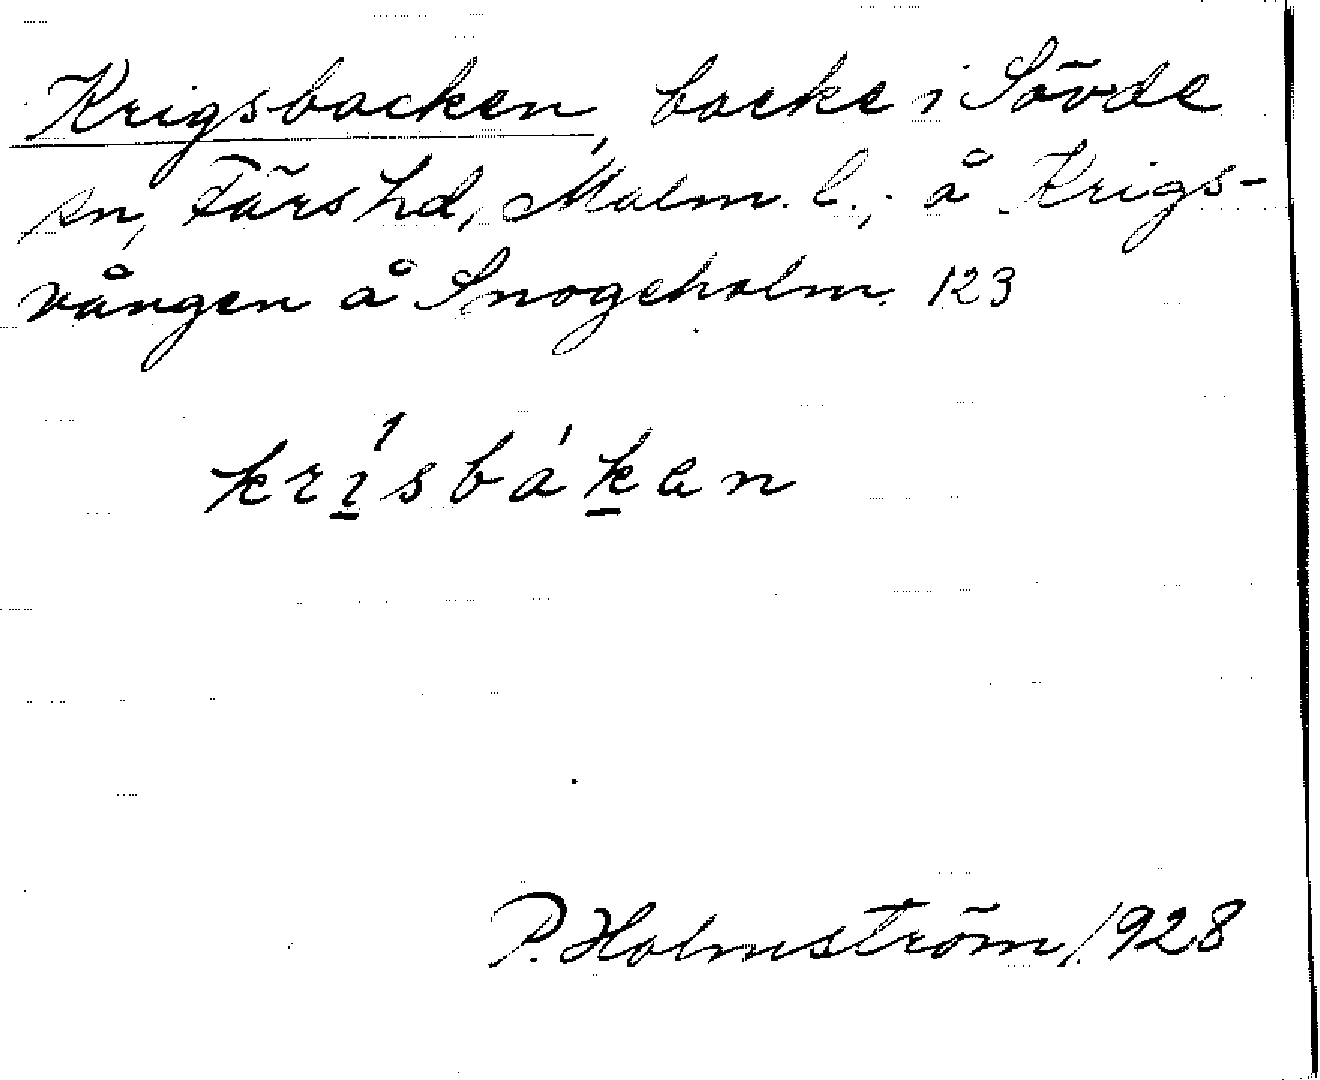 Krigsbacken, backe i Sövde
sn, Färs hd, Malm. l.; å Krigs-
vången å Snogeholm. 123
krísbákan
P. Holmström 1928